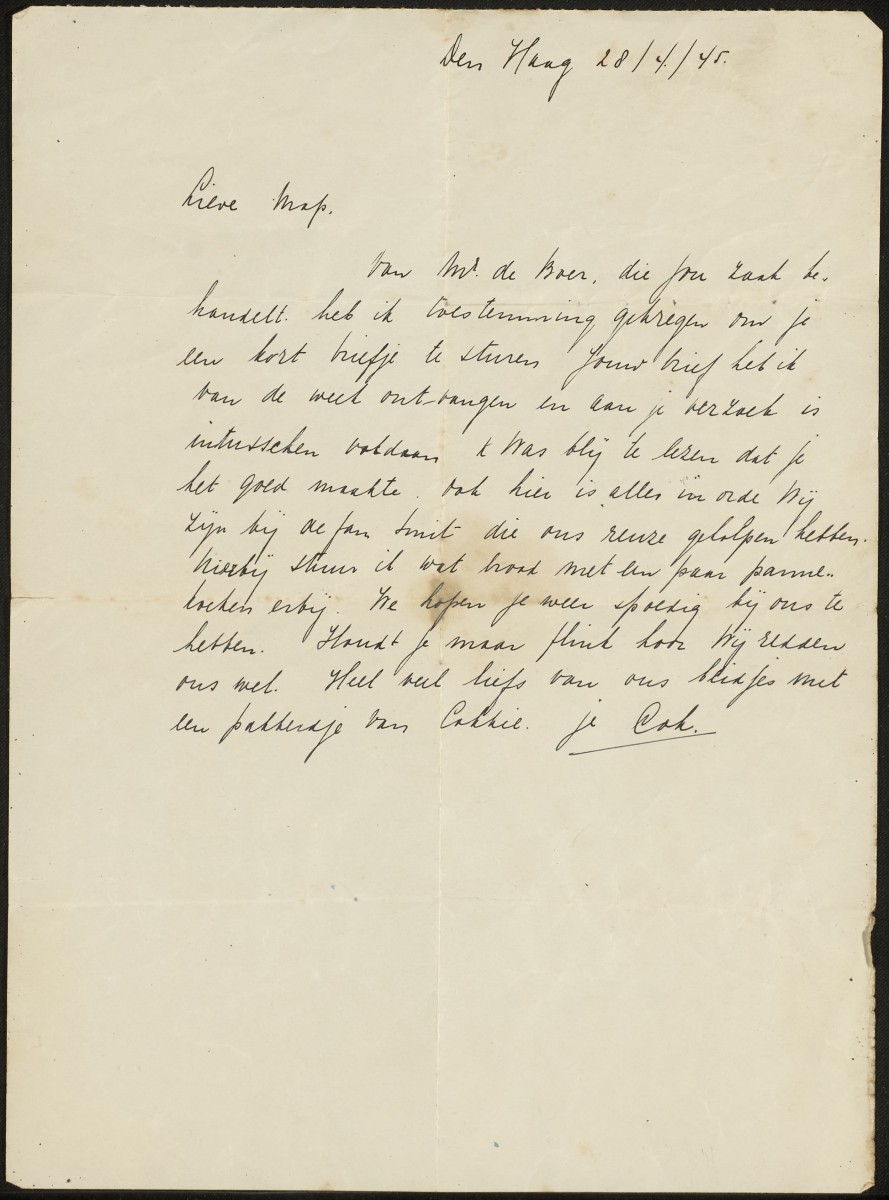 Den Haag 28/4/45.
Lieve Map.
Van Mr. de Boer, die jou zaak be-
handelt. heb ik toestemming gekregen om je
een kort briefje te sturen Jouw brief heb ik
van de week ontvangen en aan je verzoek is
intusschen voldaan k Was blij te lezen dat je
het goed maakte. Ook hier is alles in orde Wij
zijn bij de fam Smit die ons reuze geholpen hebben.
Hierbij stuur ik wat brood met een paar panne-
koeken erbij. We hopen je weer spoedig bij ons te
hebben. Houdt je maar flink hoor Wij redden
ons wel. Heel veel liefs van ons beidjes met
een pakkerdje van Cokkie. je Cok.